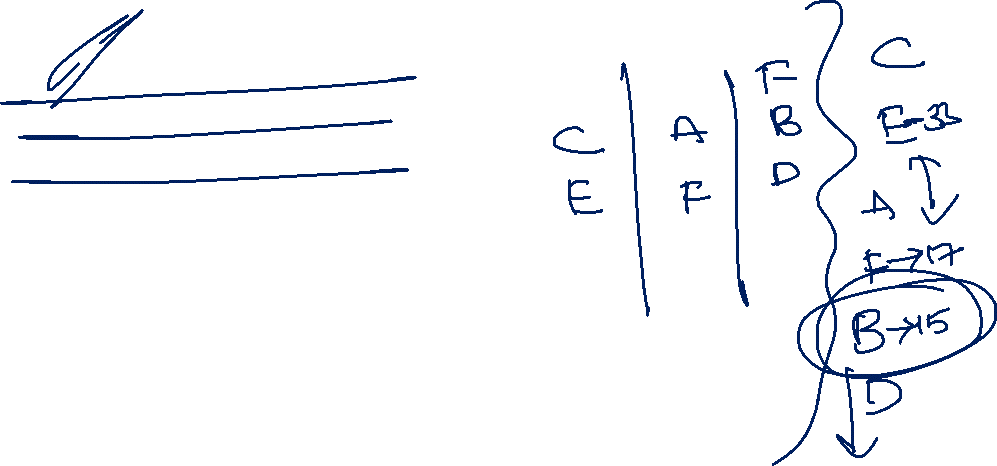 C
E
A
F
F
B
D
C
E→33
A
F→17
B→15
D